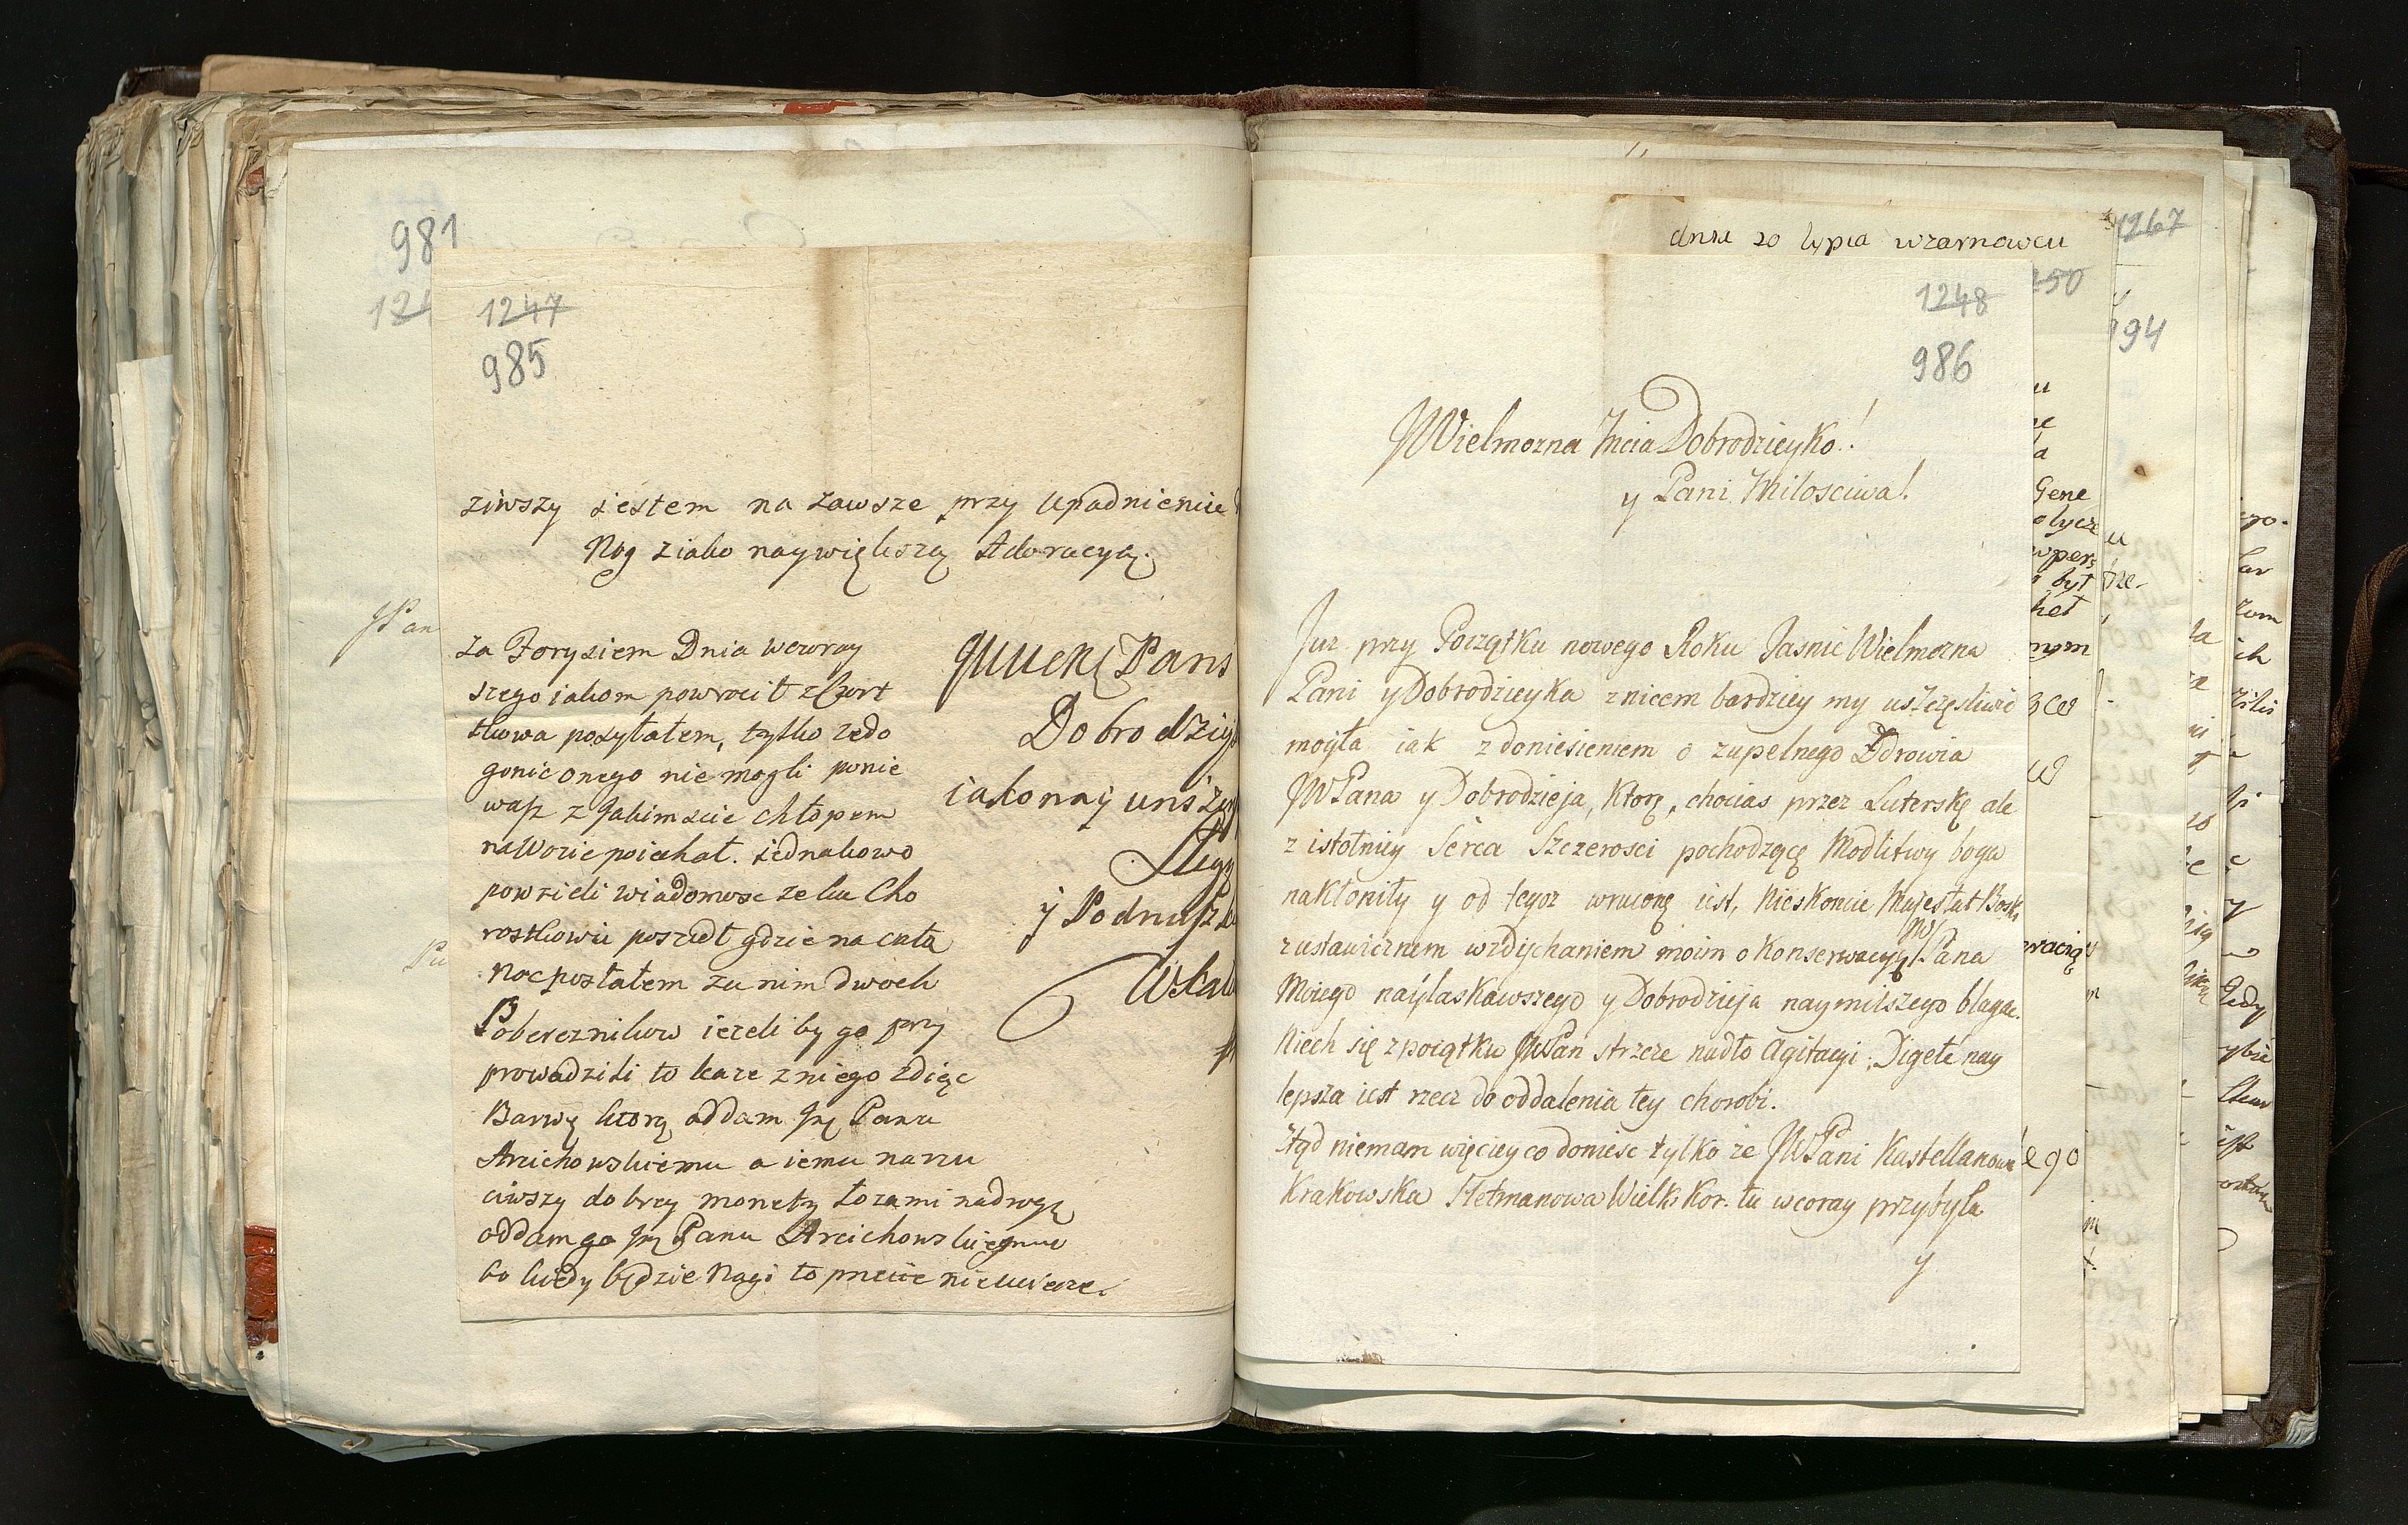 981
1247
985
ziwszy iestem na zawsze przy Upadnieniu
Nog ziako naywiększą Adoracyą.
JPan
za Forysiem Dnia wczoray
szego iakom powrocił z
tkowa posyłałem, tylko zedo
gonic onego nie mogli ponie
wasz z Jakimscie chłopem
na Wozie poiechał. iednakowo
powzieli wiadomosc ze ku Cho
rostkowu poszedł gdzie na całą
Noc posłałem za nim dwoch
Pobereznikow iezeli by go przy
prowadzili to kaze zniego zdiąc
Barwę ktorą oddam Jmę Panu
Arcichowskiemu a iemu narzu
ciwszy dobrey monety łozami nadrogę
oddam go Jmę Panu Arcichowskiemu
bo kiedy będzie Nagi to pewnie nie
Pans
Dobrodziej
iako nayuniżeń
Sług
y Podnusz
WSkal
1267
dnia 20 lypca wzarnowcu
250
194
1248
986
JWielmozna Jmcia Dobrodzieyko!
y Pani Miłosciwa!
Juz przy Początku nowego Roku Jasnie Wielmozna
Pani y Dobrodzieyka znicem bardziey my uszczęsliwic
mogła iak z doniesieniem o zupelnego Zdrowia
JWPana y Dobrodzieja, Ktorę, chocias przez Luterskę ale
z istotniey Serca Szczerosci pochodzącę Modlitwy boga
nakłoniły y od tegoz wrucone iest, Nieskoncie Majestat Bosk
z ustawicznem wzdychaniem moim o Konserwacyę JWPana
Moiego nayłaskawszego y Dobrodzieja naymilszego blagac.
Niech się zpoiątku JWPan strzeze nadto Agitacyi, Digete nay
lepsza iest rzecz do oddalenia tey chorobi.
Ztąd niemam więciey co doniesc tylko ze JWPani Kastellanowa
Krakowska Hetmanowa Wielk. Kor. tu wcoray przybyła
y